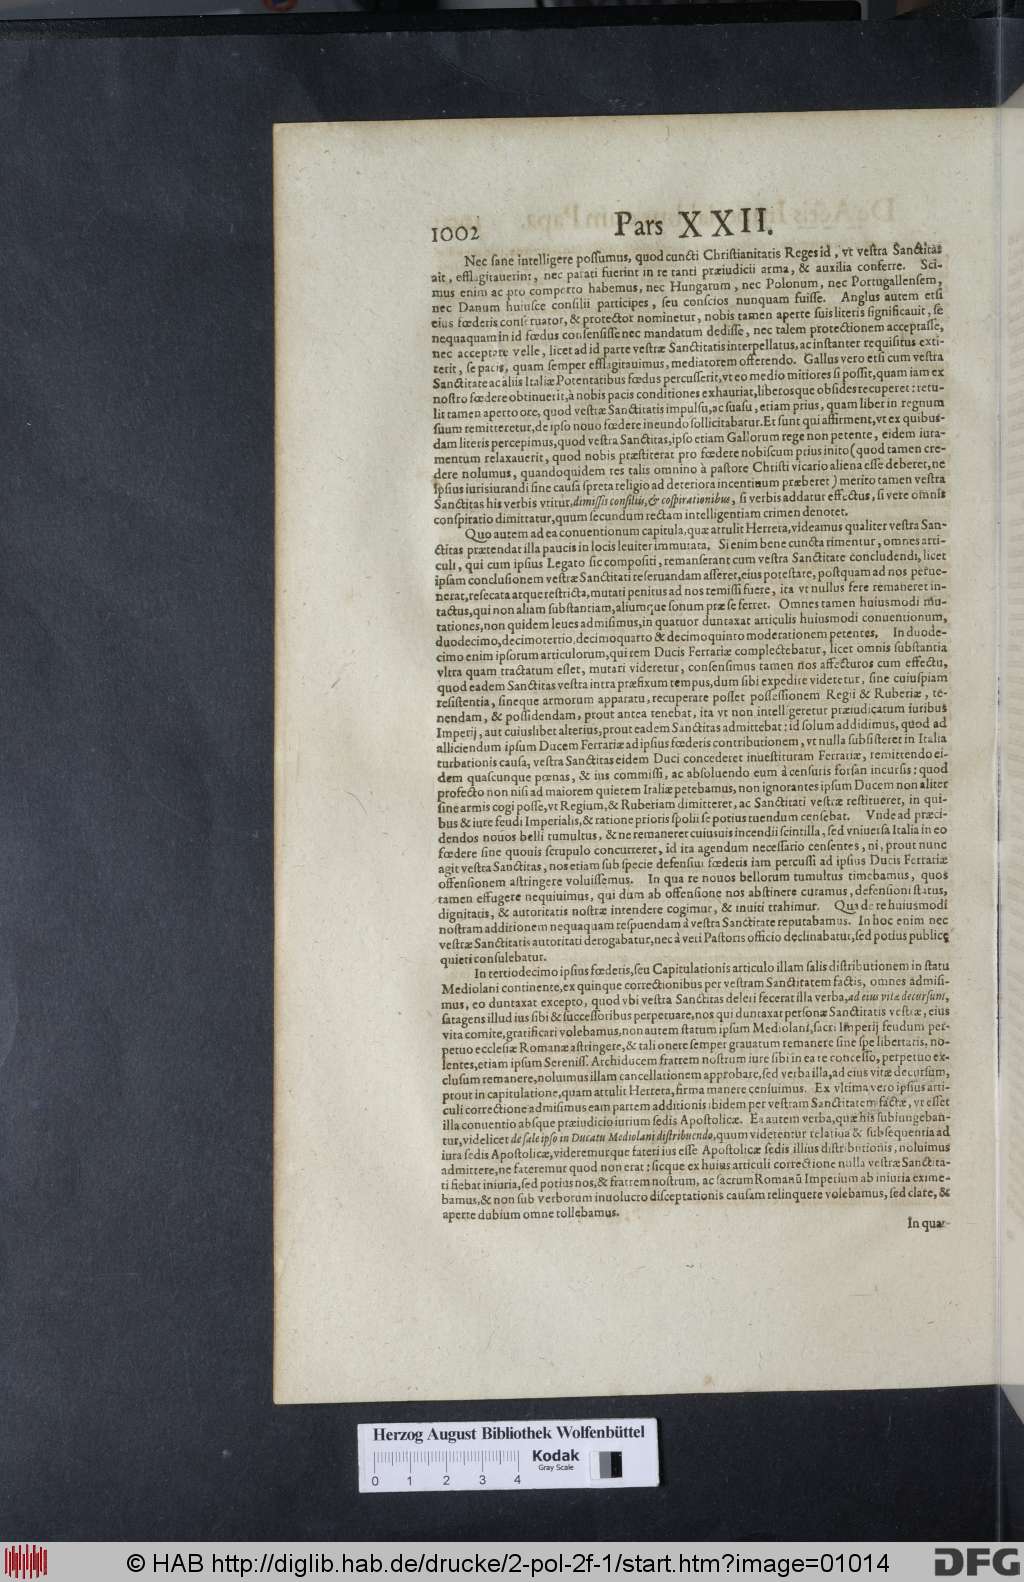 1002 Pars XXII.
Nec ſane intelligere poſſumus, quod cuncti Chriſtianitatis Reges id, vt veſtra Sanctitas
ait, efflagitauerint, nec parati fuerint in re tanti præiudicii arma, & auxilia conferre. Sci-
mus enim ac pro comperto habemus, nec Hungarum, nec Polonum, nec Portugallenſem,
nec Danum huiuſce conſilii participes, ſeu conſcios nunquam fuiſſe. Anglus autem etſi
eius fœderis conſeruator, & protector nominetur, nobis tamen aperte ſuis literis ſignificauit, ſe
nequaquam in id fœdus conſenſiſſe nec mandatum dediſſe, nec talem protectionem acceptaſſe,
nec acceptare velle, licet ad id parte veſtræ Sanctitatis interpellatus, ac inſtanter requiſitus exti-
terit, ſe pacis, quam ſemper efflagitauimus, mediatorem offerendo. Gallus vero etſi cum veſtra
Sanctitate ac aliis Italiæ Potentatibus fœdus percuſſerit, vt eo medio mitiores ſi poſſit, quam iam ex
noſtro fœdere obtinuerit, à nobis pacis conditiones exhauriat, liberosque obſides recuperet: retu-
lit tamen aperto ore, quod veſtræ Sanctitatis impulſu, ac ſuaſu, etiam prius, quam liber in regnum
ſuum remitteretur, de ipſo nouo fœdere ineundo ſollicitabatur. Et ſunt qui affirment, vt ex quibus-
dam literis percepimus, quod veſtra Sanctitas, ipſo etiam Gallorum rege non petente, eidem iura-
mentum relaxauerit, quod nobis præſtiterat pro fœdere nobiſcum prius inito (quod tamen cre-
dere nolumus, quandoquidem res talis omnino à paſtore Chriſti vicario aliena eſſe deberet, ne
ipſius iurisiurandi ſine cauſa ſpreta religio ad deteriora incentiuum præberet) merito tamen veſtra
Sanctitas his verbis vtitur, dimiſſis conſiliis, & coſpirationibus, ſi verbis addatur effectus, ſi vere omnis
conſpiratio dimittatur, quum ſecundum rectam intelligentiam crimen denotet.
Quo autem ad ea conuentionum capitula, quæ attulit Herrera, videamus qualiter veſtra San-
ctitas prætendat illa paucis in locis leuiter immutata. Si enim bene cuncta rimentur, omnes arti-
culi, qui cum ipſius Legato ſic compoſiti, remanſerant cum veſtra Sanctitate concludendi, licet
ipſam concluſionem veſtræ Sanctitati reſeruandam aſſeret, eius poteſtate, poſtquam ad nos perue-
nerat, reſecata atque reſtricta, mutati penitus ad nos remiſſi fuere, ita vt nullus fere remaneret in-
tactus, qui non aliam ſubſtantiam, aliumque ſonum præ ſe ferret. Omnes tamen huiusmodi mu-
tationes, non quidem leues admiſimus, in quatuor duntaxat articulis huiusmodi conuentionum,
duodecimo, decimotertio, decimoquarto & decimoquinto moderationem petentes. In duode-
cimo enim ipſorum articulorum, qui rem Ducis Ferrariæ complectebatur, licet omnis ſubſtantia
vltra quam tractatum eſſet, mutari videretur, conſenſimus tamen nos affecturos cum effectu,
quod eadem Sanctitas veſtra intra præfixum tempus, dum ſibi expedire videretur, ſine cuiuſpiam
reſiſtentia, ſineque armorum apparatu, recuperare poſſet poſſeſſionem Regii & Ruberiæ, te-
nendam, & poſſidendam, prout antea tenebat, ita vt non intelligeretur præiudicatum iuribus
Imperij, aut cuiuslibet alterius, prout eadem Sanctitas admittebat: id ſolum addidimus, quod ad
alliciendum ipſum Ducem Ferrariæ ad ipſius fœderis contributionem, vt nulla ſubſiſteret in Italia
turbationis cauſa, veſtra Sanctitas eidem Duci concederet inueſtituram Ferrariæ, remittendo ei-
dem quaſcunque pœnas, & ius commiſſi, ac abſoluendo eum à cenſuris forſan incurſis: quod
profecto non niſi ad maiorem quietem Italiæ petebamus, non ignorantes ipſum Ducem non aliter
ſine armis cogi poſſe, vt Regium, & Ruberiam dimitteret, ac Sanctitati veſtræ reſtitueret, in qui-
bus & iure feudi Imperialis, & ratione prioris ſpolii ſe potius tuendum cenſebat. Vnde ad præci-
dendos nouos belli tumultus, & ne remaneret cuiusuis incendii ſcintilla, ſed vniuerſa Italia in eo
fœdere ſine quouis ſcrupulo concurreret, id ita agendum neceſſario cenſentes, ni, prout nunc
agit veſtra Sanctitas, nos etiam ſub ſpecie defenſiui fœderis iam percuſſi ad ipſius Ducis Ferrariæ
offenſionem aſtringere voluiſſemus. In qua re nouos bellorum tumultus timebamus, quos
tamen effugere nequiuimus, qui dum ab offenſione nos abſtinere curamus, defenſioni ſtatus,
dignitatis, & autoritatis noſtræ intendere cogimur, & inuiti trahimur. Qua de re huiusmodi
noſtram additionem nequaquam reſpuendam à veſtra Sanctitate reputabamus. In hoc enim nec
veſtræ Sanctitatis autoritati derogabatur, nec à veri Paſtoris officio declinabatur, ſed potius publicę
quieti conſulebatur.
In tertiodecimo ipſius fœderis, ſeu Capitulationis articulo illam ſalis diſtributionem in ſtatu
Mediolani continente, ex quinque correctionibus per veſtram Sanctitatem factis, omnes admiſi-
mus, eo duntaxat excepto, quod vbi veſtra Sanctitas deleri fecerat illa verba, ad eius vitæ decurſum,
ſatagens illud ius ſibi & ſucceſſoribus perpetuare, nos qui duntaxat perſonæ Sanctitatis veſtræ, eius
vita comite, gratificari volebamus, non autem ſtatum ipſum Mediolani, ſacri Imperij feudum per-
petuo eccleſiæ Romanæ aſtringere, & tali onere ſemper grauatum remanere ſine ſpe libertatis, no-
lentes, etiam ipſum Sereniſſ. Archiducem fratrem noſtrum iure ſibi in ea re conceſſo, perpetuo ex-
cluſum remanere, noluimus illam cancellationem approbare, ſed verba illa, ad eius vitæ decurſum,
prout in capitulatione, quam attulit Herrera, firma manere cenſuimus. Ex vltima vero ipſius arti-
culi correctione admiſimus eam partem additionis ibidem per veſtram Sanctitatem factæ, vt eſſet
illa conuentio abſque præiudicio iurium ſedis Apoſtolicæ. Ea autem verba, quæ his ſubiungeban-
tur, videlicet de ſale ipſo in Ducatu Mediolani diſtribuendo, quum viderentur relatiua & ſubſequentia ad
iura ſedis Apoſtolicæ, videremurque fateri ius eſſe Apoſtolicæ ſedis illius diſtributionis, noluimus
admittere, ne fateremur quod non erat: ſicque ex huius articuli correctione nulla veſtræ Sanctita-
ti fiebat iniuria, ſed potius nos, & fratrem noſtrum, ac ſacrum Romanũ Imperium ab iniuria exime-
bamus, & non ſub verborum inuolucro diſceptationis cauſam relinquere volebamus, ſed clare, &
aperte dubium omne tollebamus.
In quar-
Herzog August Bibliothek Wolfenbüttel
Kodak
Gray Scale
0 1 2 3 4
© HAB http://diglib.hab.de/drucke/2-pol-2f-1/start.htm?image=01014
DFG